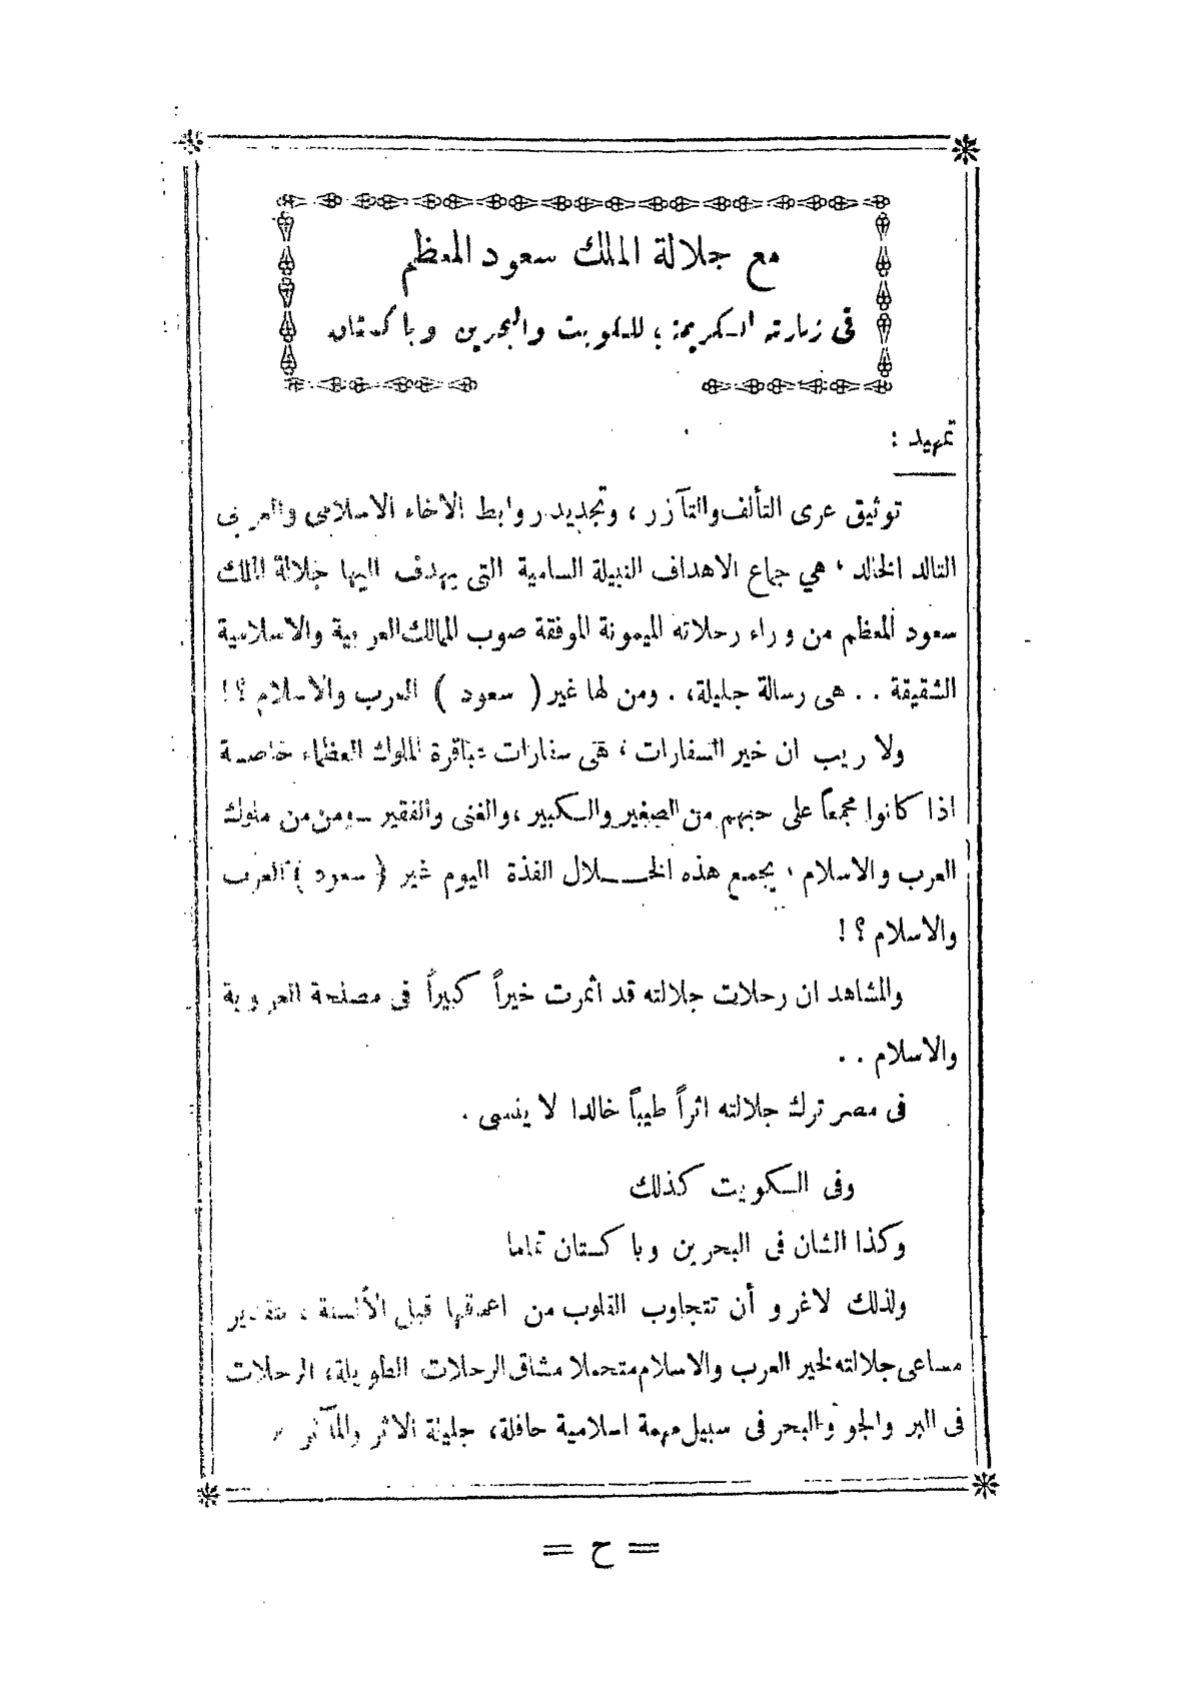 مع جلالة الملك سعود المعظم
فى زيارته الكريمة ؛ للكويت والبحرين وباكستان
تمهيد :
توثيق عرى التألف والتآزر ، وتجديد روابط الاخاء الاسلامى والعربى
التالد الخالد ، هي جماع الاهداف النبيلة السامية التى يهدف اليها جلالة الملك
سعود المعظم من وراء رحلاته الميمونة الموفقة صوب الممالك العربية والاسلامية
الشقيقة . . هى رسالة جليلة ، . ومن لها غير ( سعود ) العرب والاسلام ؟ !
ولا ريب ان خير السفارات ، هى سفارات عباقرة الملوك العظماء خاصة
اذا كانوا مجمعاً على حبهم من الصغير والكبير ، والغنى والفقير ــ ومن من ملوك
العرب والاسلام ، يجمع هذه الخــلال الفذة اليوم غير ( سعود ) العرب
والاسلام ؟ !
والمشاهد ان رحلات جلالته قد اثمرت خيراً كبيراً فى مصلحة العروبة
والاسلام . .
فى مصر ترك جلالته اثراً طيباً خالدا لا ينسى .
وفى الكويت كذلك
وكذا الشان فى البحرين وباكستان تماما
ولذلك لاغرو أن تتجاوب القلوب من اعماقها قبل الألسنة ، بتقدير
مساعى جلالته لخير العرب والاسلام متحملا مشاق الرحلات الطويلة ، الرحلات
فى البر والجو والبحر فى سبيل مهمة اسلامية حافلة ، جليلة الاثر والمآثر
= ح =